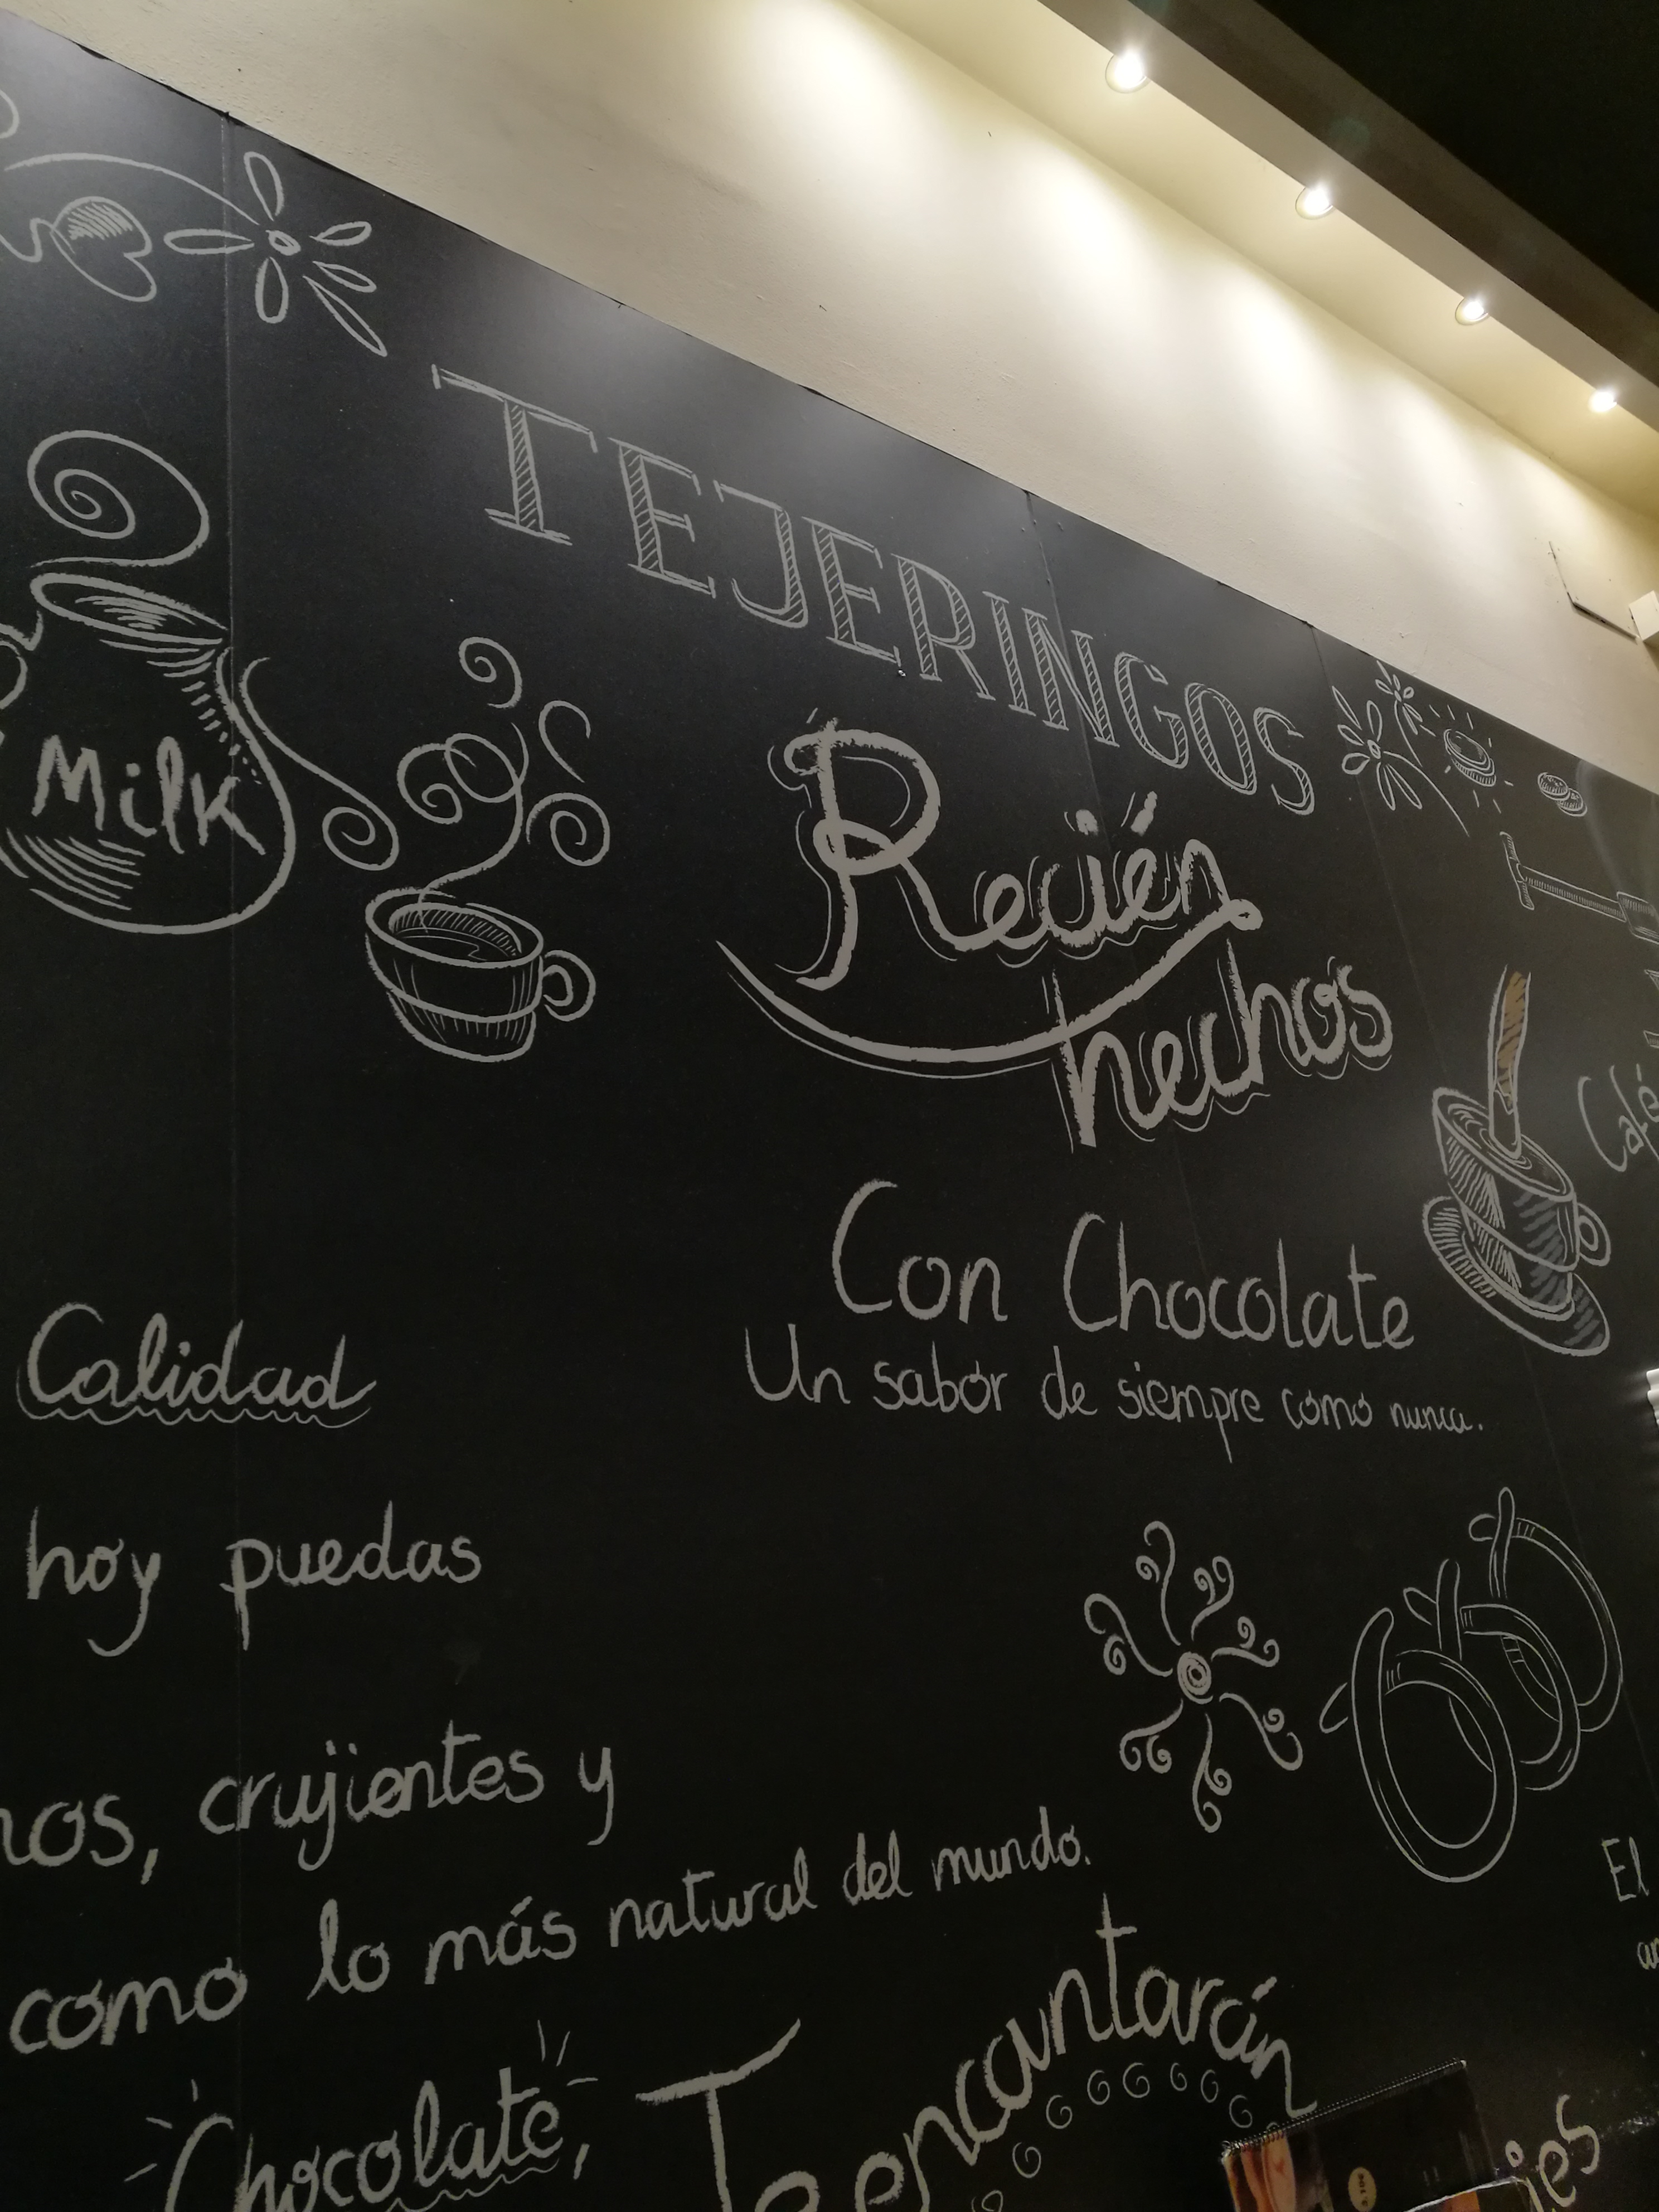 TEJERINGOS
Recién
hechos
Milk
Café
Con Chocolate
Un sabor de siempre como nunca.
Calidad
hoy puedas
crujientes y
como lo más natural del mundo.
El
Te encantarán
Chocolate,